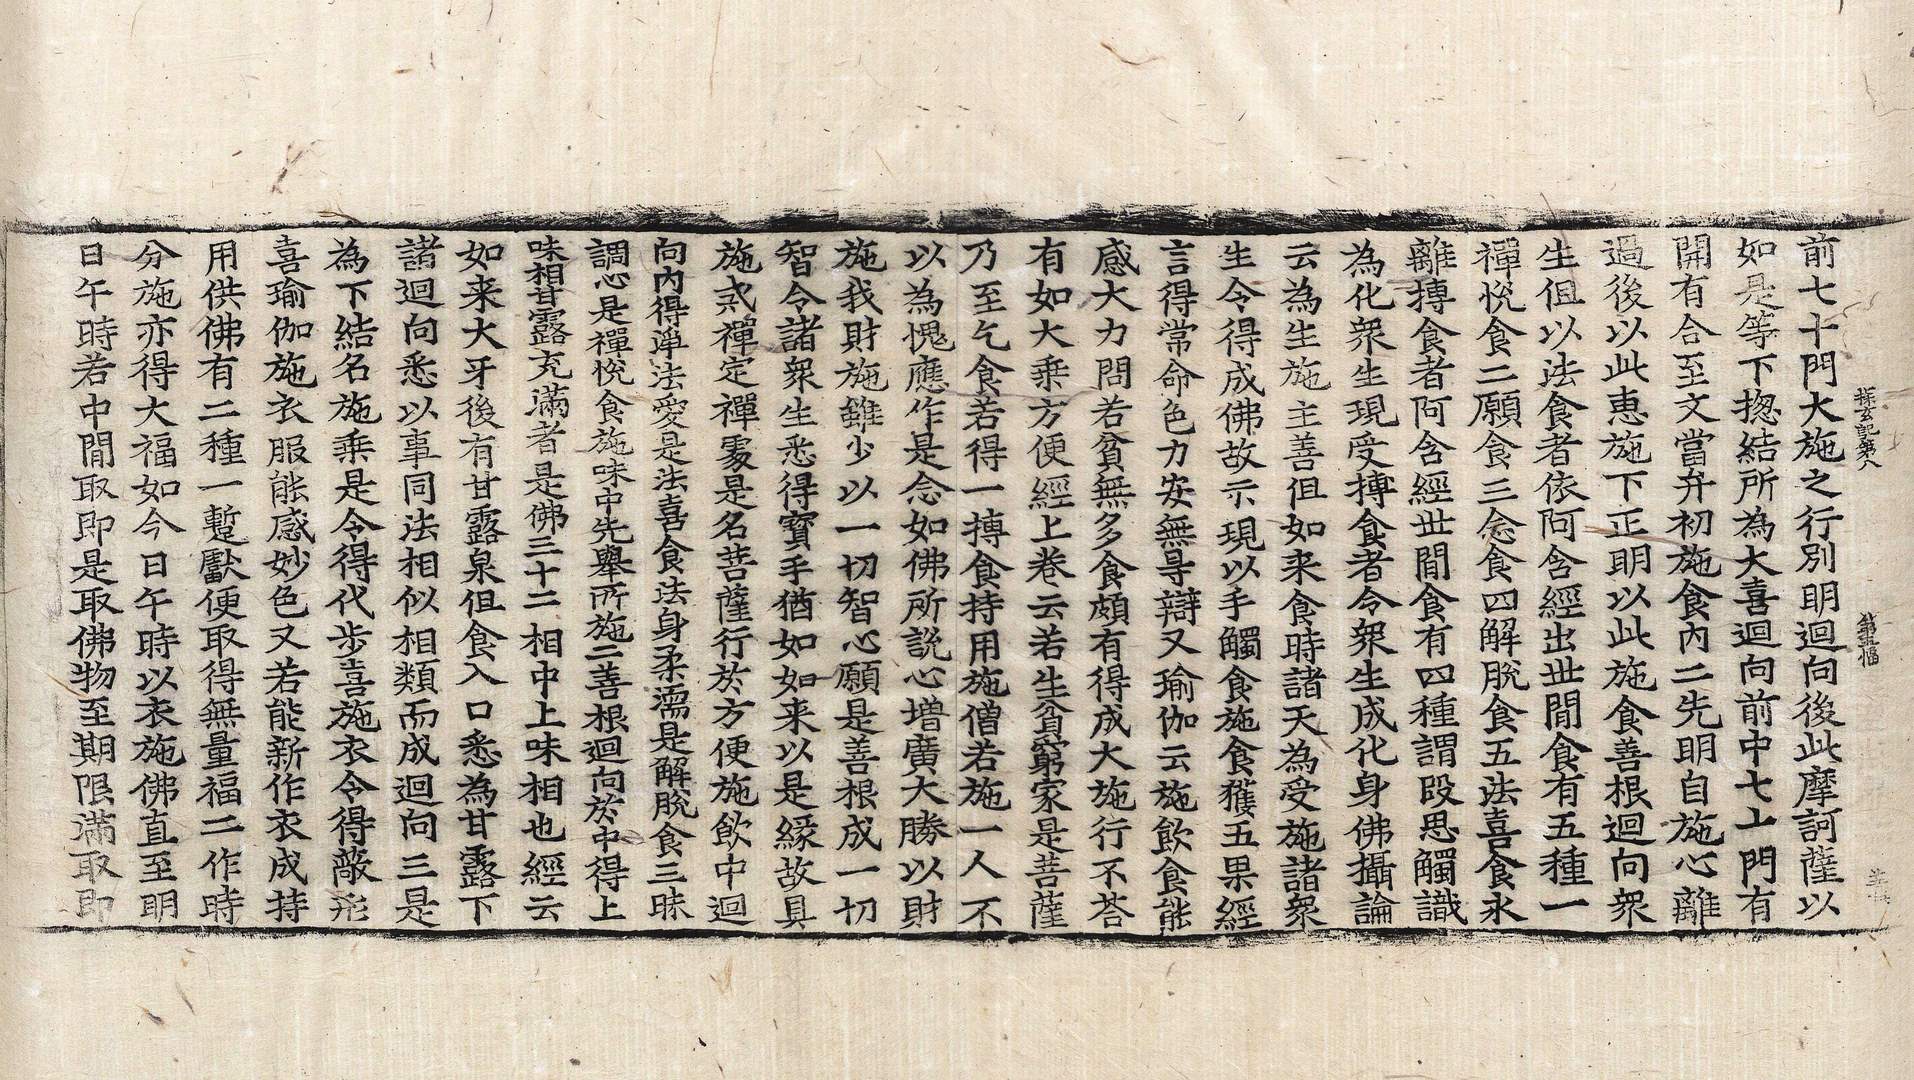 探玄記第八
前七十門大施之行別明迴向後此摩訶薩以
如是等下揔結所為大喜迴向前中七十門有
開有合至文當弁初施食內二先明自施心離
過後以此恵施下正明以此施食善根迴向衆
生但以法食者依阿含經出世間食有五種一
禪悅食二願食三念食四解脫食五法喜食永
離摶食者阿含經世間食有四種謂段思觸識
為化衆生現受摶食者令衆生成化身佛攝論
云為生施主善但如来食時諸天為受施諸衆
生令得成佛故示現以手觸食施食獲五果經
言得常命色力安無㝵辯又瑜伽云施飲食能
感大力問若貧無多食頗有得成大施行不荅
有如大乘方便經上卷云若生貧窮家是菩薩
乃至乞食若得一摶食持用施僧若施一人不
以為愧應作是念如佛所說心增廣大勝以財
施我財施雖少以一切智心願是善根成一切
智令諸衆生悉得寳手猶如如来以是緣故具
施戒禪定禪處是名菩薩行於方便施飲中迴
向內得淨法愛是法喜食法身柔濡是解脫食三昧
調心是禪悅食施味中先舉所施二善根迴向於中得上
味相甘露充滿者是佛三十二相中上味相也經云
如来大牙後有甘露泉但食入口悉為甘露下
諸迴向悉以事同法相似相類而成迴向三是
為下結名施乘是令得代步喜施衣令得蔽形
喜瑜伽施衣服能感妙色又若能新作衣成持
用供佛有二種一蹔獻便取得無量福二作時
分施亦得大福如今日午時以衣施佛直至明
日午時若中間取即是取佛物至期限滿取即